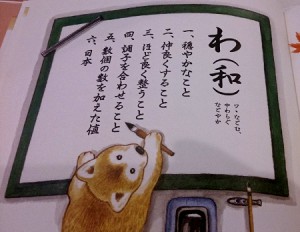 わ（和）
ワ・なごむ、
やわらぐ
なごやか
一、穏やかなこと
二、仲良くすること
三、ほど良く整うこと
四、調子を合わせること
五、数個の数を加えた値
六、日本